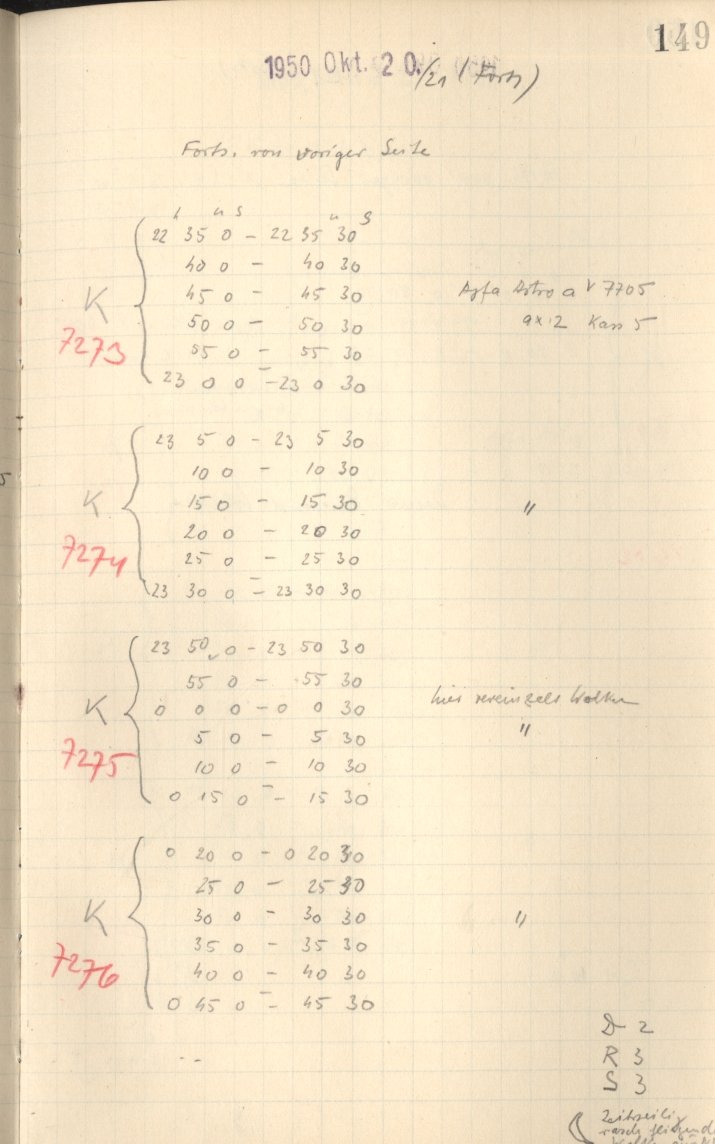 149
1950 Okt. 20./21 (Forts)
Forts. von voriger Seite
h m s m s
22 35 0 – 22 35 30
40 0 – 40 30
K 45 0 – 45 30 Agfa Astro a V 7705
7273 50 0 – 50 30 9x12 Kass 5
55 0 – 55 30
23 0 0 – 23 0 30
23 5 0 – 23 5 30
10 0 – 10 30
K 15 0 – 15 30 "
7274 20 0 – 20 30
25 0 – 25 30
23 30 0 – 23 30 30
23 50 0 – 23 50 30
55 0 – 55 30 hier vereinzelt Wolken
K 0 0 0 – 0 0 30
7275 5 0 – 5 30 "
10 0 – 10 30
0 15 0 – 15 30
0 20 0 – 0 20 30
25 0 – 25 30
K 30 0 – 30 30 "
7276 35 0 – 35 30
40 0 – 40 30
0 45 0 – 45 30
D 2
R 3
S 3
Zeitweilig